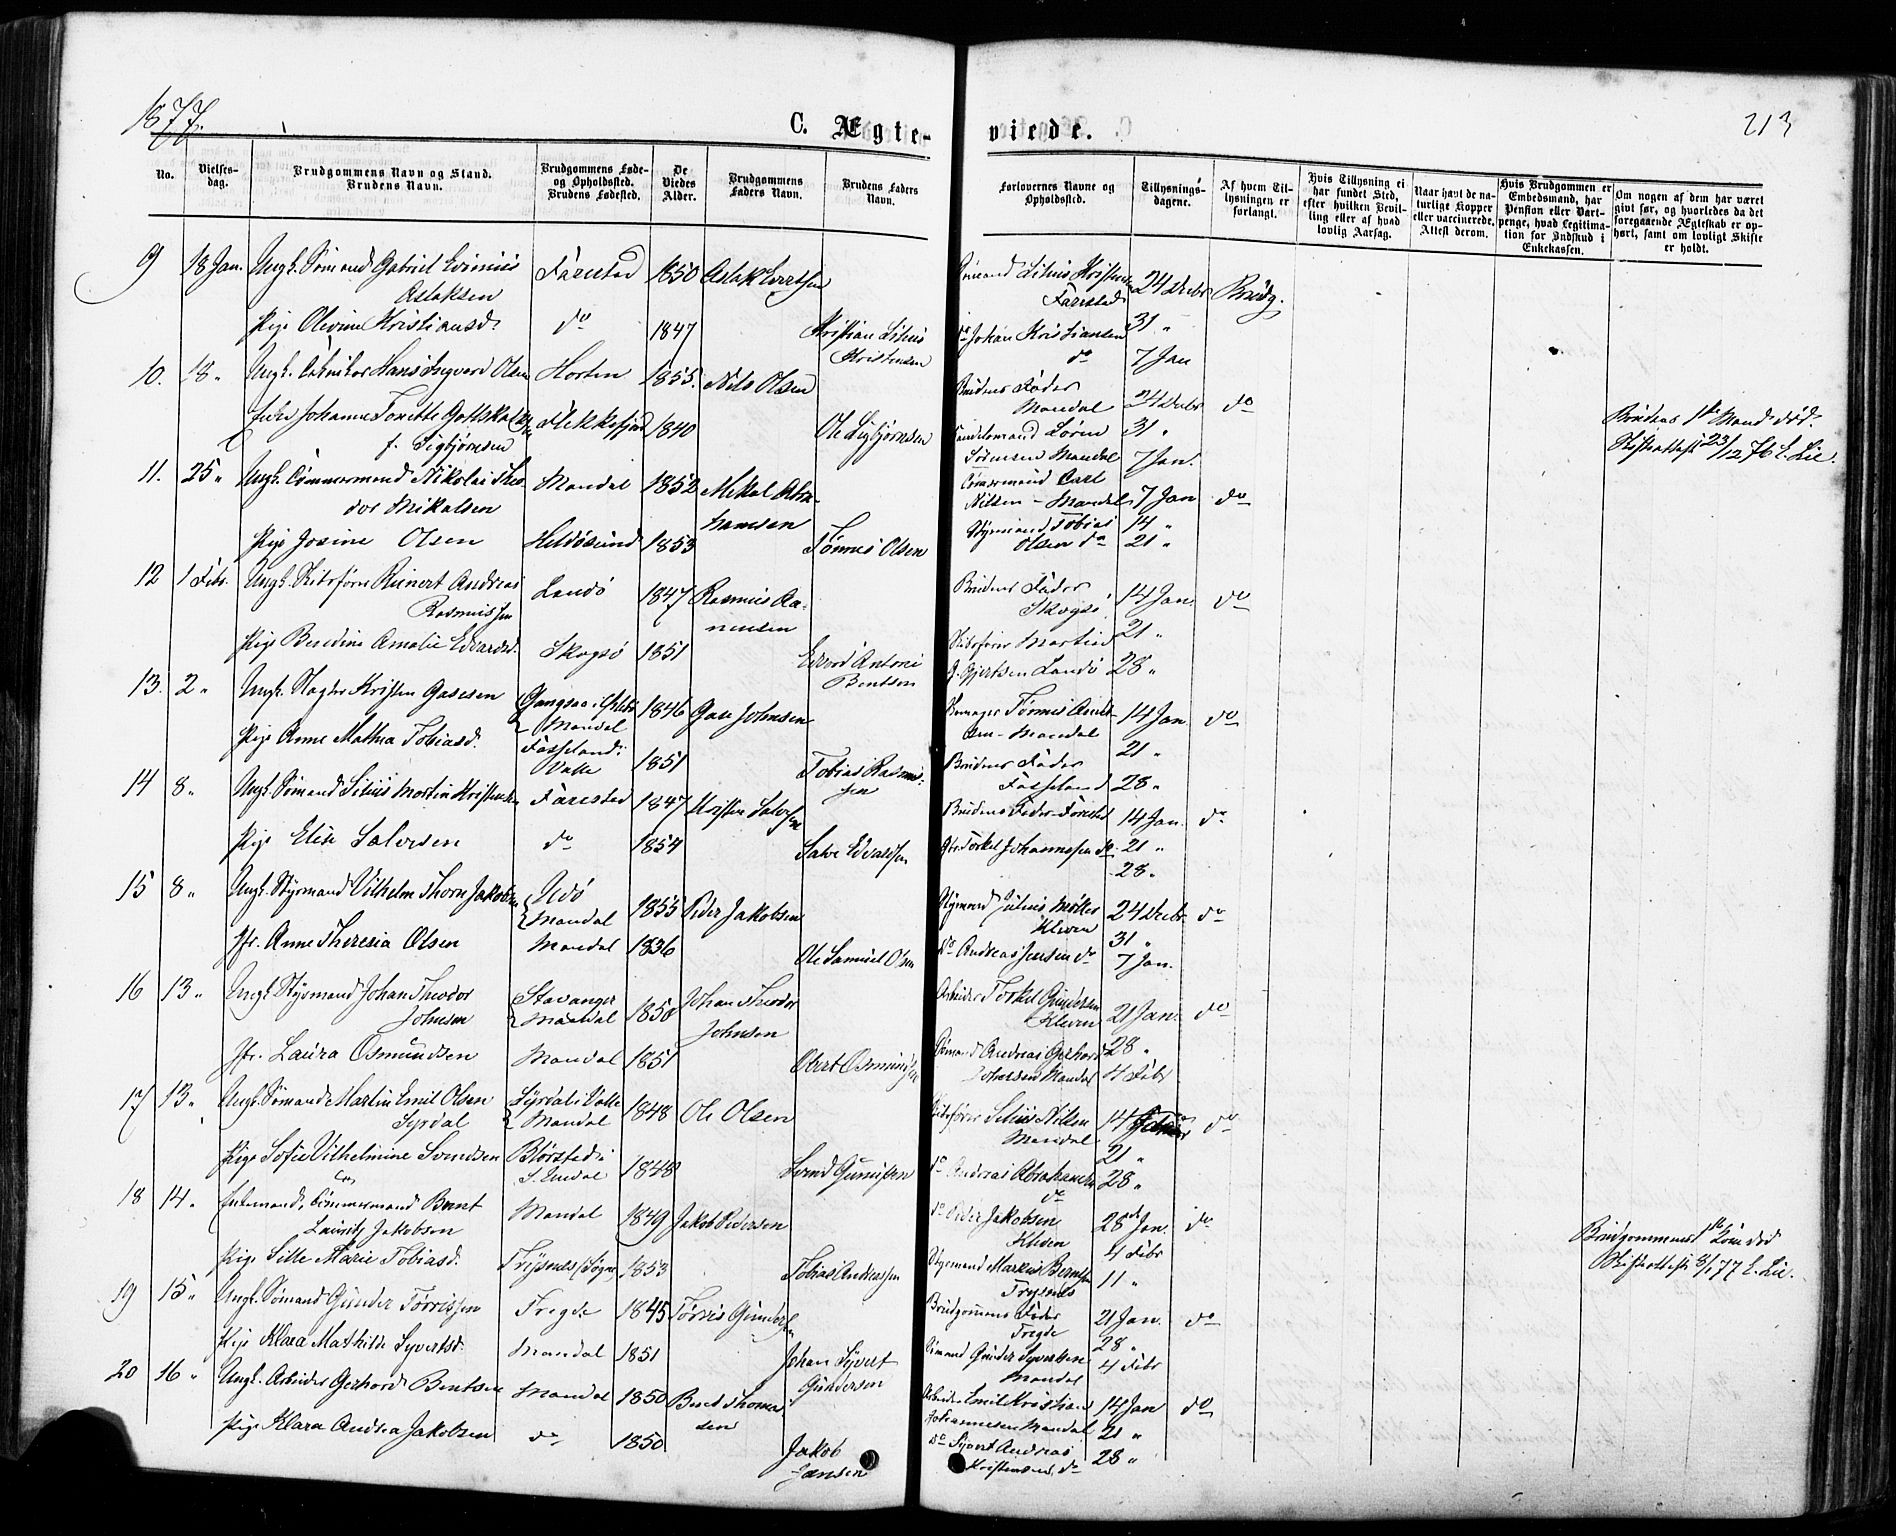 1877.
C. Ægte-
viede.
213
No.
Vielses-
dag.
Brudgommens Navn og Stand.
Brudens Navn.
Brudgommens Føde-
og Opholdssted.
Brudens Fødested.
De
Viedes
Alder.
Brudgommens
Faders Navn.
Brudens Faders
Navn.
Forlovernes Navne og
Opholdssted.
Tillysnings-
dagene.
Af hvem Til-
lysningen er
forlangt.
Hvis Tillysning ei
har fundet Sted,
efter hvilken Bevil-
ling eller af hvad
lovlig Aarsag.
Naar havt de na-
turlige Kopper
eller vaccinerede.
Attest derom.
Hvis Brudgommen er
Embedsmand, har
Pension eller Vart-
penge, hvad Legitima-
tion for Indskud i
Enkekassen.
Om nogen af dem har været
givt før, og hvorledes da det
foregaaende Ægteskab er op-
hørt, samt om lovligt Skifte
er holdt.
9 18 Jan. Ungk. Sømand Gabriel Evinius Farestad 1850 Aslak Evertsen Sømand Sitius Kristensen 24 Decbr Brudg.
Aslaksen Farestad
Pige Olevine Kristiansd. do 1847 Kristian Sitius do Johan Kristiansen 31 "
Kristensen do 7 Jan
10. 18 " Ungk. Hans Ingvard Olsen Horten 1855. Nils Olsen Brudens Fader 24 Decbr do
Mandal
Enke Johanne Tonette Flekkefjord 1840 Ole Sigbjørnsen Handelsmand Søren 31 " Brudens 1ste Mand død.
f. Sigbjørnsen Sørensen Mandal 7 Jan. Skifteattest 23/12 76 E. Lie.
11. 25 " Ungk. Tømmermand Nikolai Theo- Mandal 1852 Mikal Abra- Tømmermand Carl 7 Jan do
dor Mikalsen hamsen Nilsen - Mandal
Pige Josine Olsen Hildøsund 1853 Tønnes Olsen Styrmand Tobias 14 "
Olsen do 21 "
12 1 Febr. Ungk. Skibsfører Reinert Andreas Landø 1847 Rasmus Ra- Brudens Fader 14 Jan. do
Rasmussen mussen Skogsø
Pige Beredine Amalie Edvardsd. Skogsø 1851 Edvard Antoni Skibsfører Martin 21 "
Bentsen G. Gjertsen Landø 28 "
13. 2 " Ungk. Slagter Kristen Gasesen 1846 Gase Johnsen Tønnes 14 Jan do
Mandal Mandal
Pige Anne Mathea Tobiasd. Fasseland i 1851 Tobias Rasmus- Brudens Fader 21 "
Valle sen Fasseland 28 "
14 8 " Ungk. Sømand Sitius Martin Kristensen Farestad 1847 Kristen Salvesen Brudens Fader Farestad 14 Jan. do
Pige Elise Salvesen do 1854 Salve Edvardsen Torkel Johannessen do 21 "
28 "
15 8 " Ungk. Styrmand Vilhelm Thorn Jakobsen Udø 1855 Peder Jakobsen Styrmand Julius Møller 24 Decbr. do
Mandal Kleven
Jfr. Anne Theresia Olsen Mandal 1836 Ole Samuel Olsen do Andreas Jensen do 31 "
7 Jan.
16 13 " Ungk. Styrmand Johan Theodor Stavanger 1850 Johan Theodor Arbeider Torkel Gundersen 21 Jan. do
Johnsen Mandal Johnsen Kleven
Jfr. Laura Osmundsen Mandal 1851 Obert Osmundsen Sømand Andreas Gerhard 28 "
Mandal 4 Febr
17 13 " Ungk. Sømand Martin Emil Olsen Syrdal i Valle 1848 Ole Olsen Skibsfører Sitius Nilsen 14 do
Syrdal Mandal Mandal
Pige Sofie Vilhelmine Svendsen Blørstad i 1848 Svend Gunnufsen do Andreas Abrahamsen 21 "
S. Undal do 28 "
18 14 " Enkemand, Tømmermand Bernt Mandal 1849 Jakob Pedersen do Peder Jakobsen 28 Jan. do Brudgommens 1ste Kone død
Lauritz Jakobsen Kleven
Pige Sille Marie Tobiasd. Trysnes (Søgne) 1853 Tobias Andreassen Styrmand Markus Berntsen 4 Febr Skifteattest 3/1 77 E. Lie.
Trysnes 11 "
19 15 " Ungk. Sømand Gunder Tørrissen Tregde 1845 Tørris Gundersen Brudgommens Fader 21 Jan. do
Tregde
Pige Klara Mathilde Syvertsd. Mandal 1851 Johan Syvert Sømand Gunder Syvertsen 28 "
Gundersen Mandal 4 Febr
20 16 " Ungk. Arbeider Gerhard Bentsen Mandal 1850 Bent Thomas- Arbeider Emil Kristian 14 Jan do
sen Johannesen Mandal 21 "
Pige Klara Andrea Jakobsen do 1850 Jakob do Syvert Andreas
Jansen Kristensen do 28 "